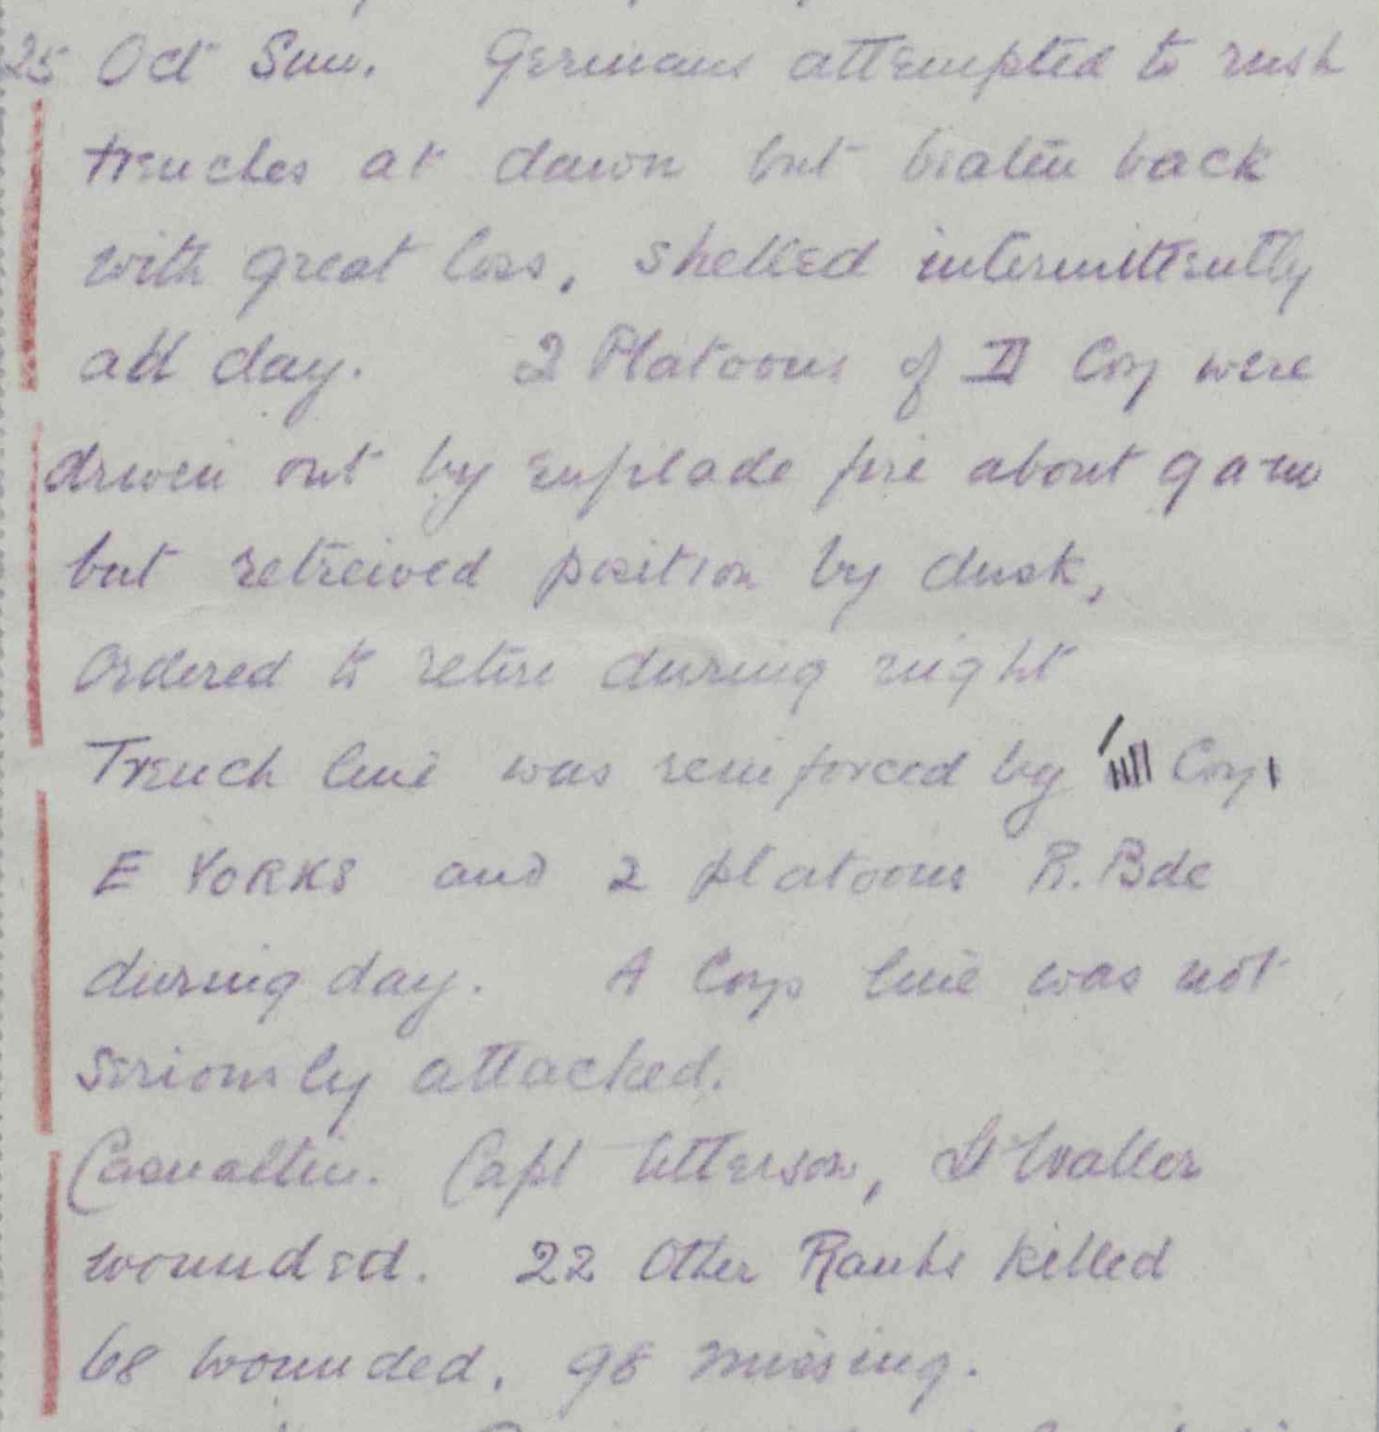 25 Oct Sun. Germans attempted to rush
trenches at dawn but beaten back
with great loss, shelled intermittently
all day. 2 Platoons of D Coy were
driven out by enfilade fire about 9 am
but retreived position by dusk,
Ordered to retire during night
Trench line was reinforced by Coy
E YORKS and 2 platoons R. Bde
during day. A Coys line was not
seriously attacked.
Casualties. Capt Utterson, Lt Waller
wounded. 22 Other Ranks killed
68 wounded, 98 missing.